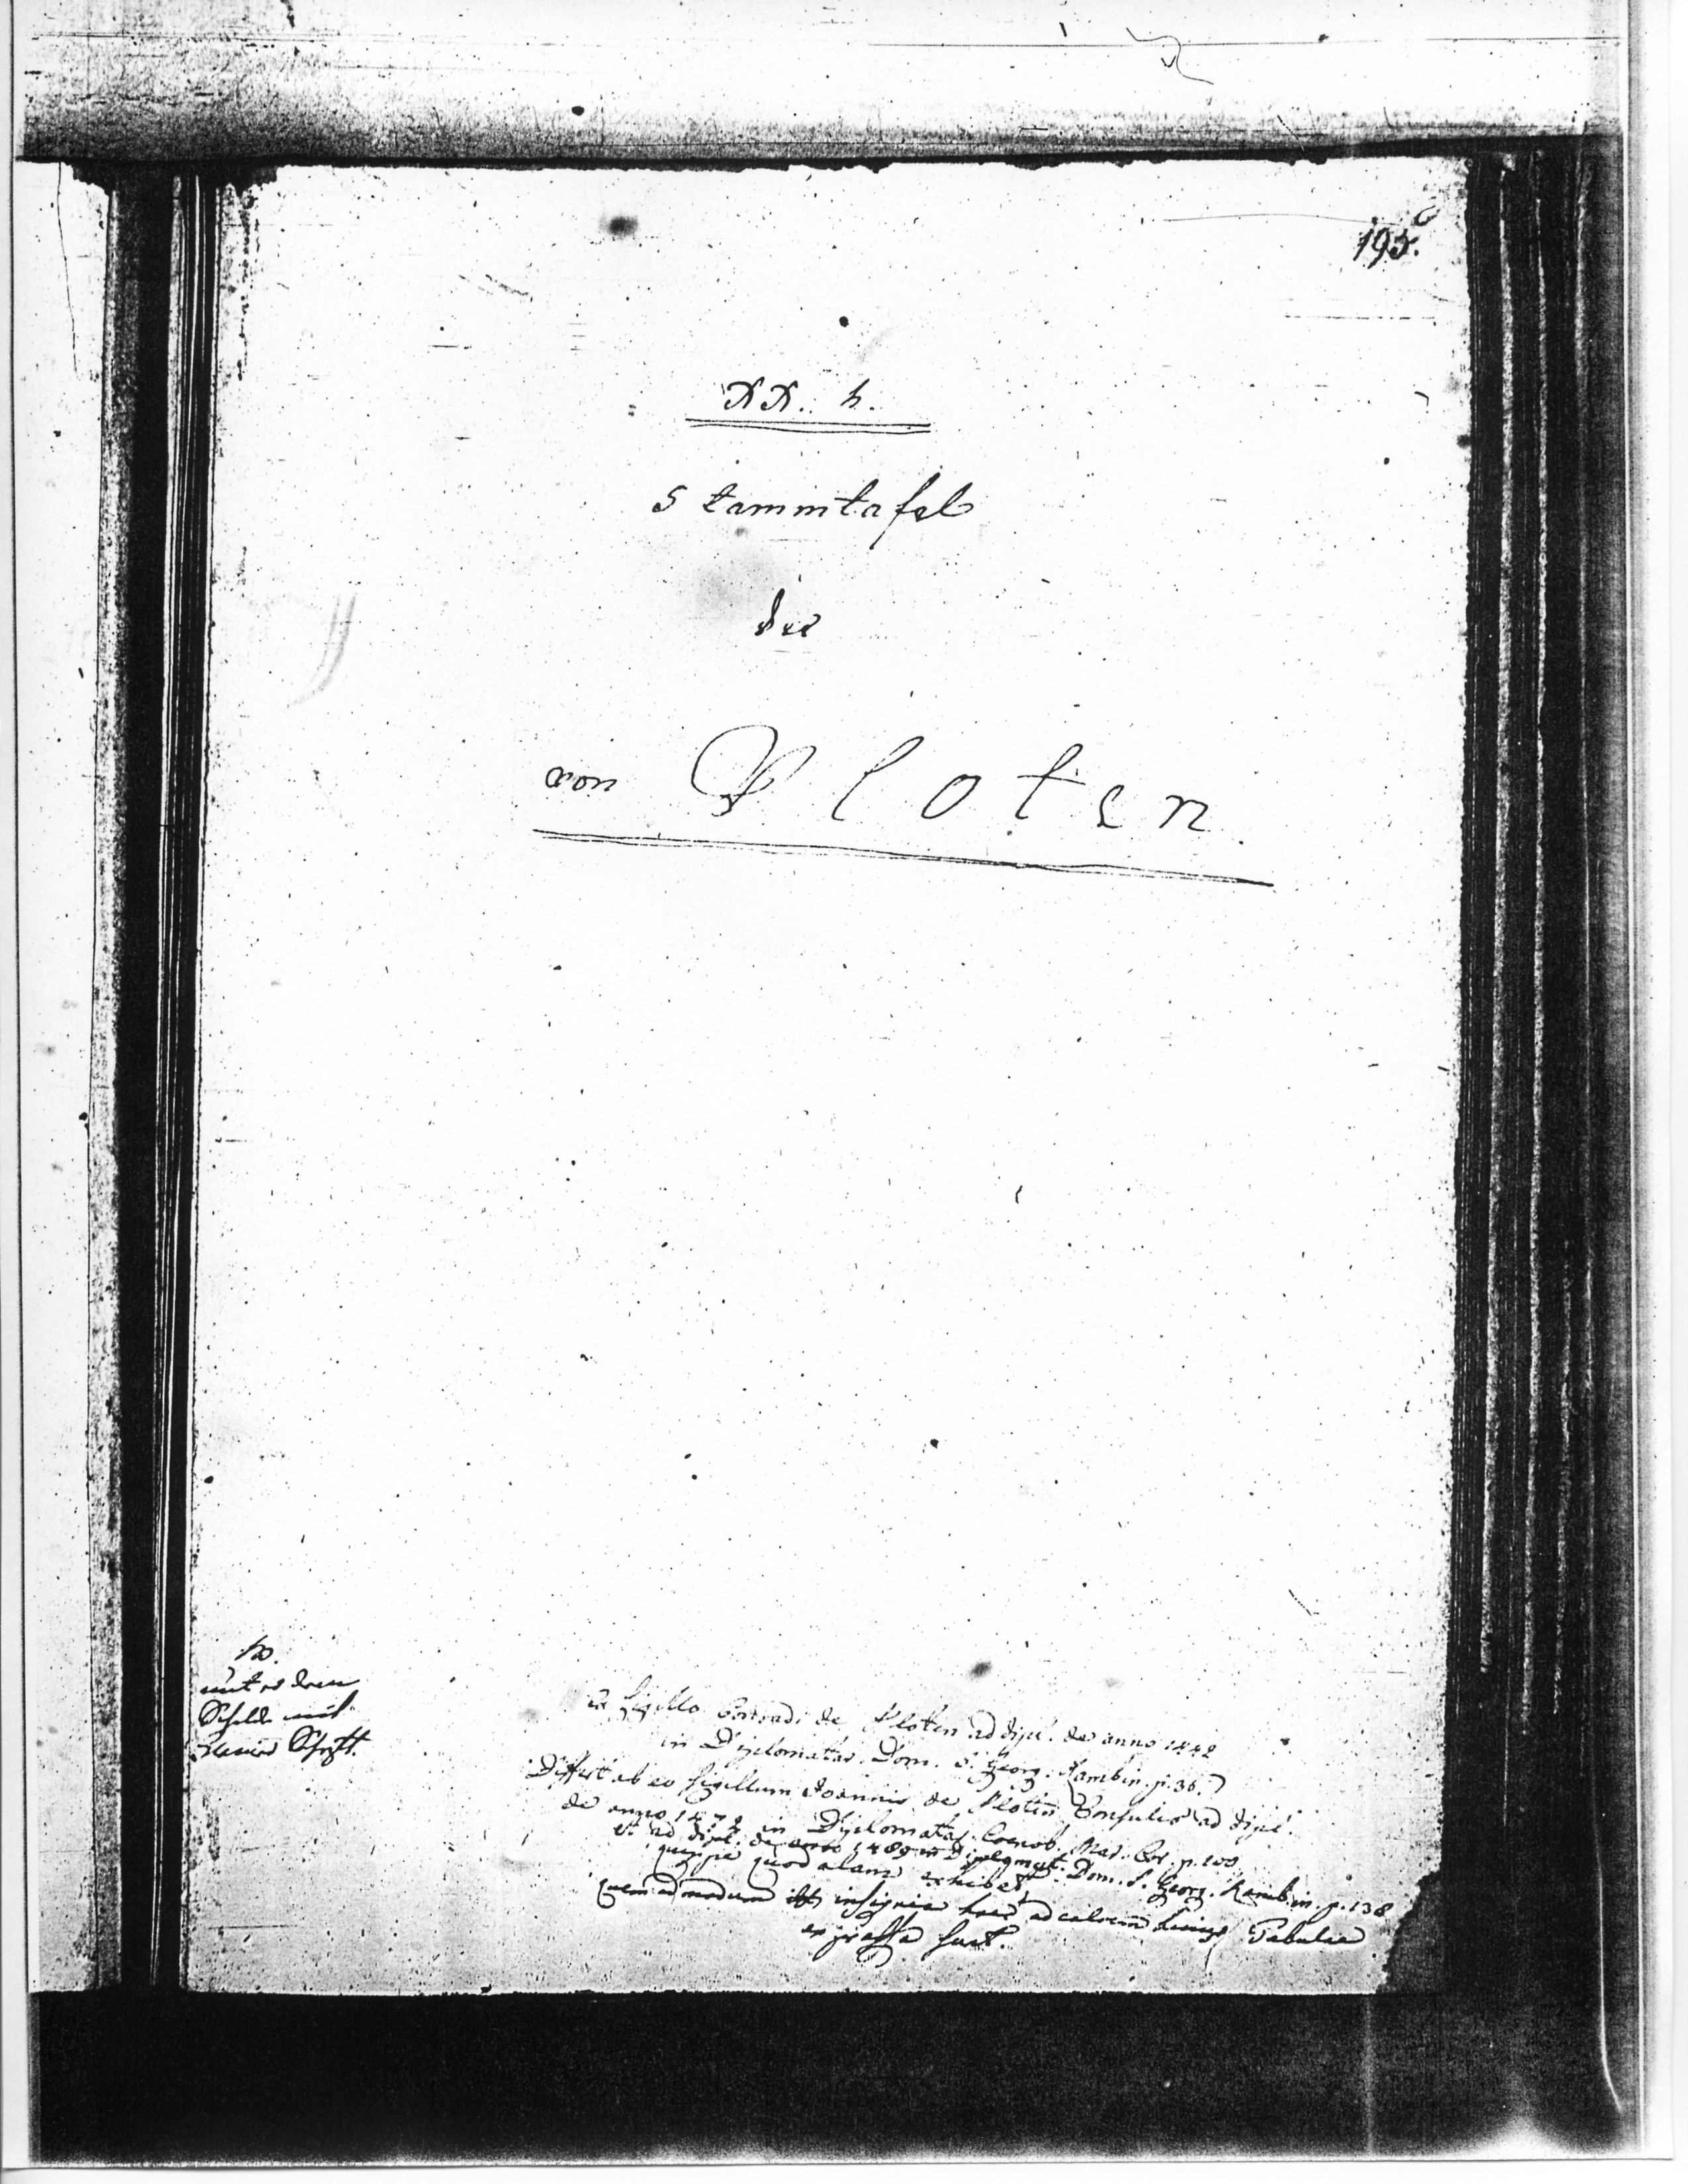 195.
XX. h.
Stammtafel
der
von Ploten
unter dem
Schilde mit
Schrift.
Ex sigillo Conradi de Ploten ad dipl. de anno 1442
in Diplomatar. Dom. S. Georg. Rambin. p. 36.
Differt ab eo sigillum Joannis de Ploten Consulis ad dipl.
de anno 1472 in Diplomatar. Coenob. Mar. p. 100
et ad dipl. de anno 1489 in Diplomat. Dom. S. Georg. Rambin. p. 138
quippe quod alam exhibet
quemadmodum insignia haec ad calcem hujus Tabulae
expressa sunt.